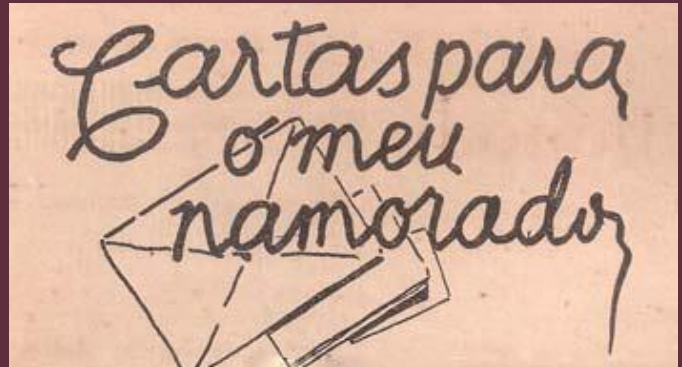 Cartas para
o meu
namorado